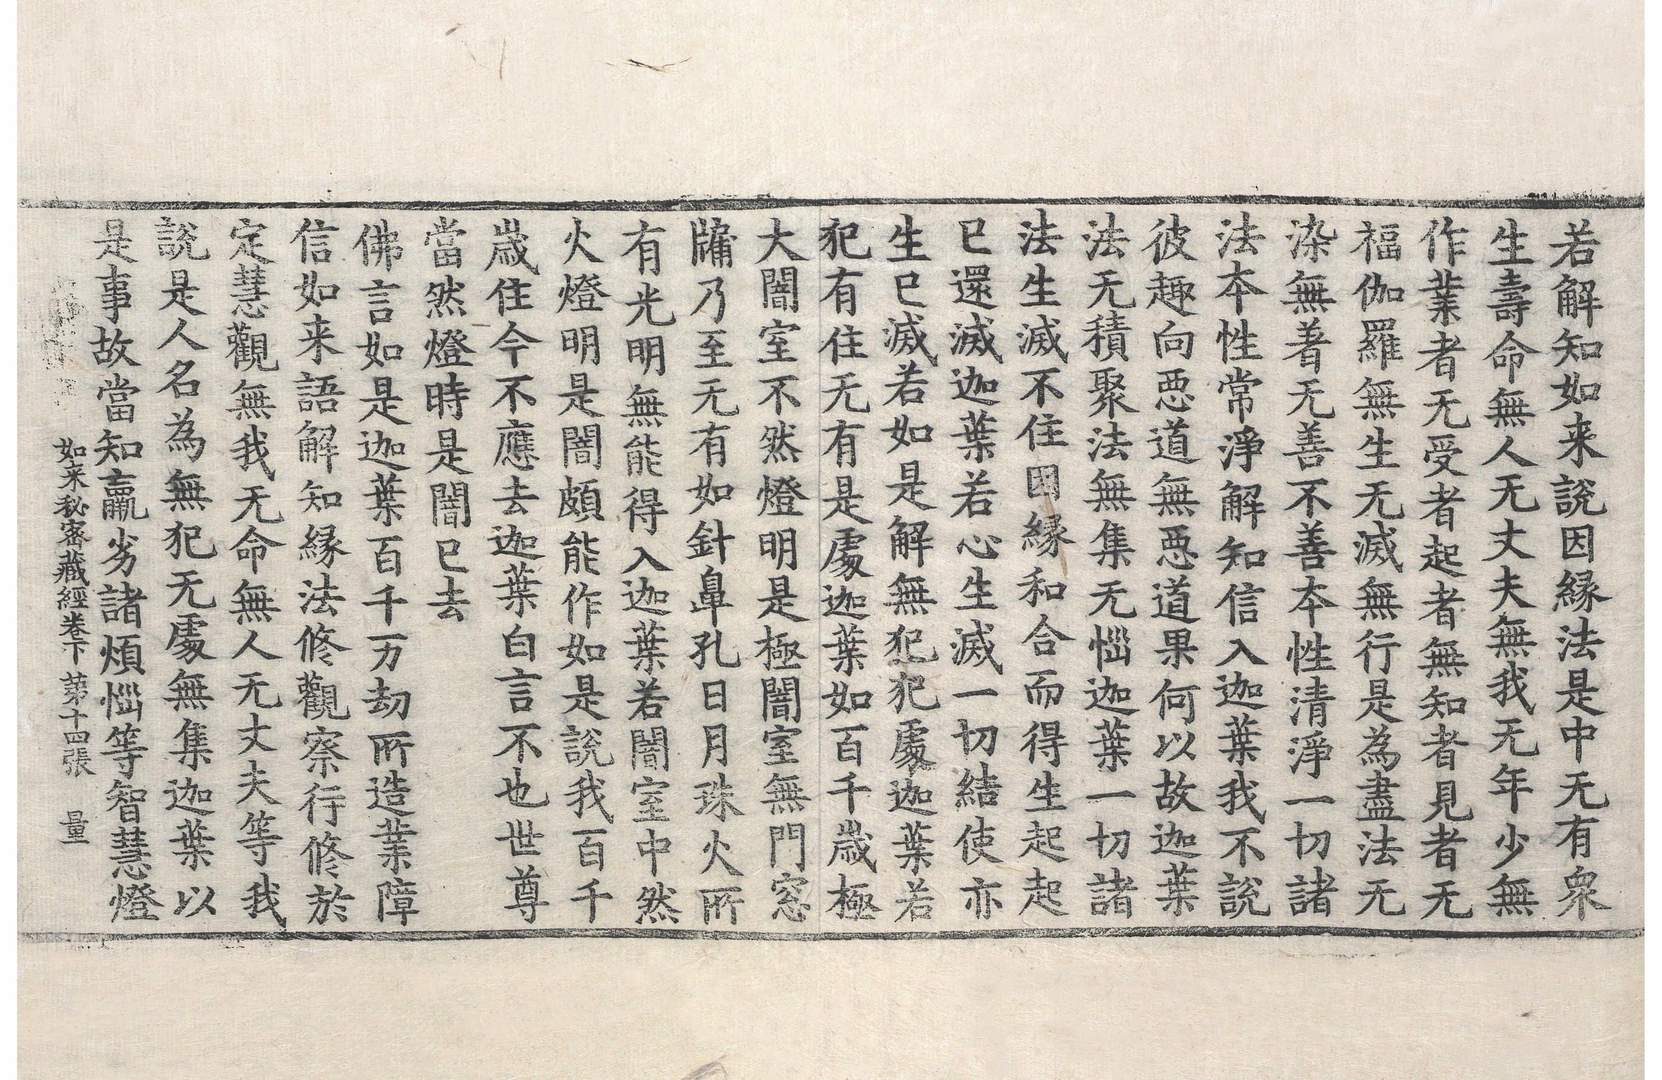 若解知如来說因緣法是中无有衆
生壽命無人无丈夫無我无年少無
作業者无受者起者無知者見者无
福伽羅無生无滅無行是為盡法无
染無著无善不善本性清淨一切諸
法本性常淨解知信入迦葉我不說
彼趣向惡道無惡道果何以故迦葉
法无積聚法無集无惱迦葉一切諸
法生滅不住因緣和合而得生起起
已還滅迦葉若心生滅一切結使亦
生已滅若如是解無犯犯處迦葉若
犯有住无有是處迦葉如百千歲極
大闇室不然燈明是極闇室無門窓
牖乃至无有如針鼻孔日月珠火所
有光明無能得入迦葉若闇室中然
火燈明是闇頗能作如是說我百千
歲住今不應去迦葉白言不也世尊
當然燈時是闇已去
佛言如是迦葉百千万劫所造業障
信如来語解知緣法修觀察行修於
定慧觀無我无命無人无丈夫等我
說是人名為無犯无處無集迦葉以
是事故當知羸劣諸煩惱等智慧燈
如来秘密藏經卷下 第十四張 量